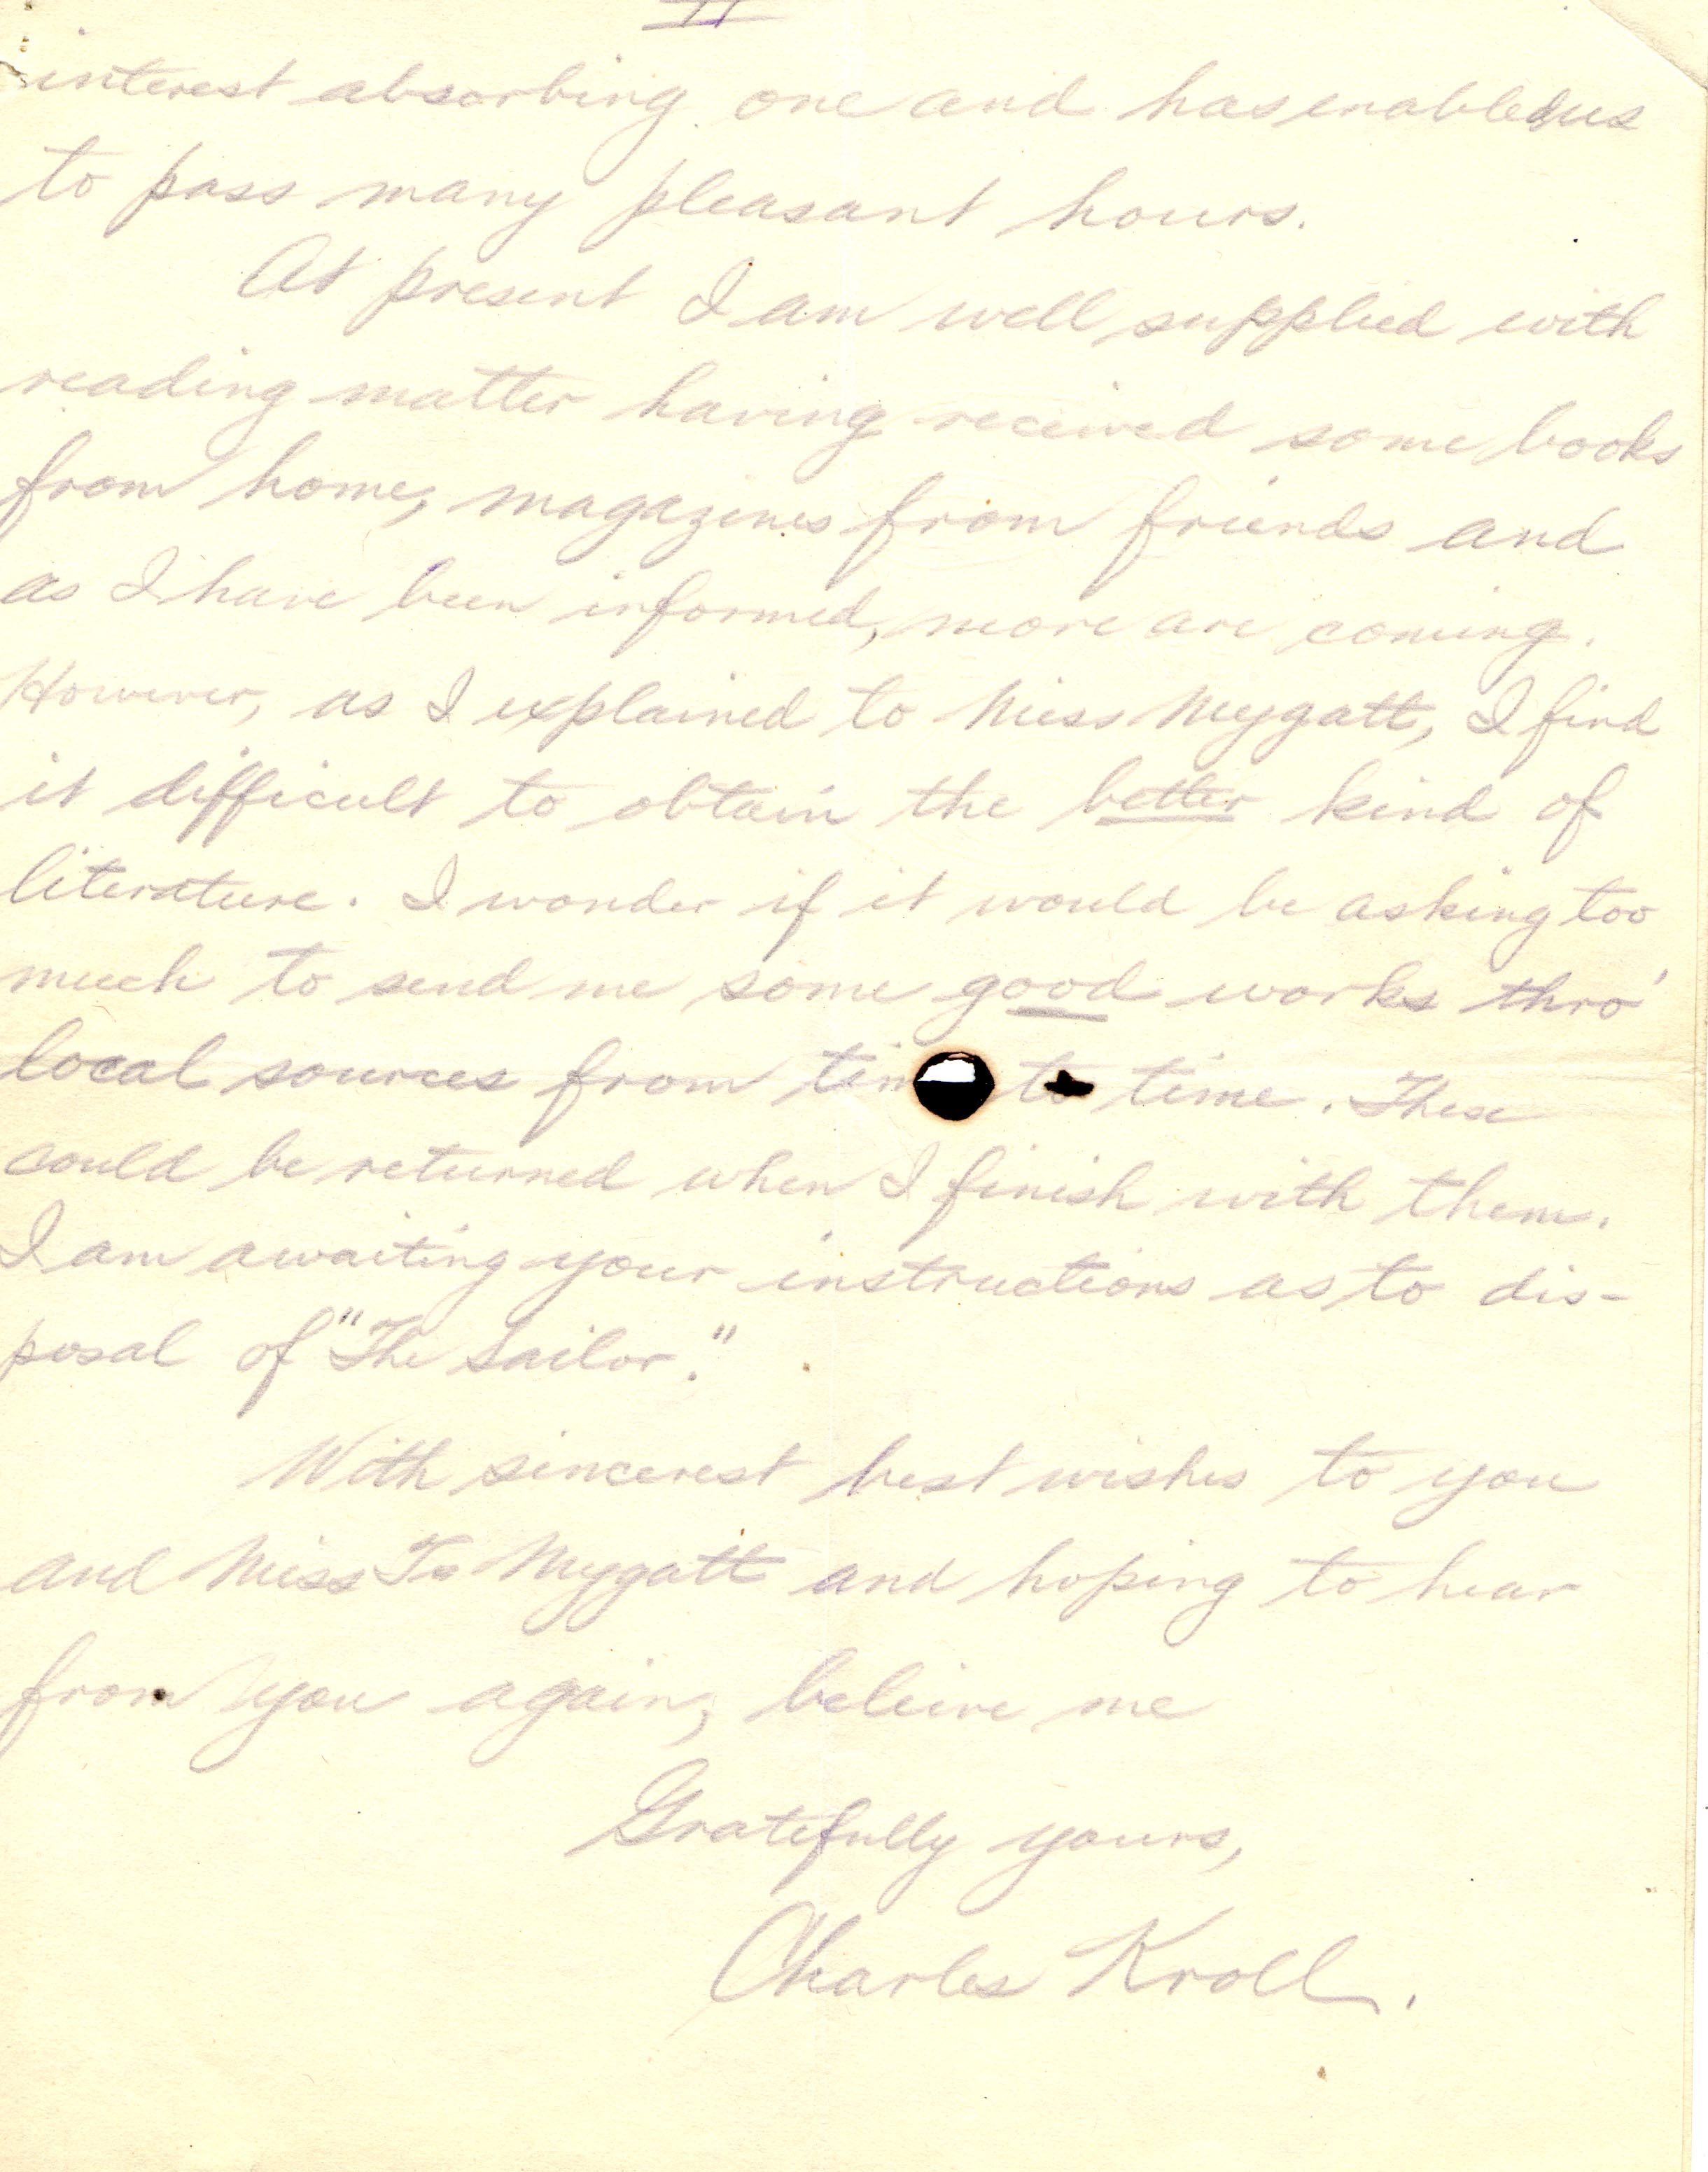 II
interest absorbing one and has enabled us
to pass many pleasant hours.
At present I am well supplied with
reading matter having received some books
from home, magazines from friends and
as I have been informed, more are coming.
However, as I explained to Miss Mygatt, I find
it difficult to obtain the better kind of
literature. I wonder if it would be asking too
much to send me some good works thro'
local sources from tim to time. These
could be returned when I finish with them.
I am awaiting your instructions as to dis-
posal of "The Sailor."
With sincerest best wishes to you
and Miss Mygatt and hoping to hear
from you again, beleive me
Gratefully yours,
Charles Kroll.